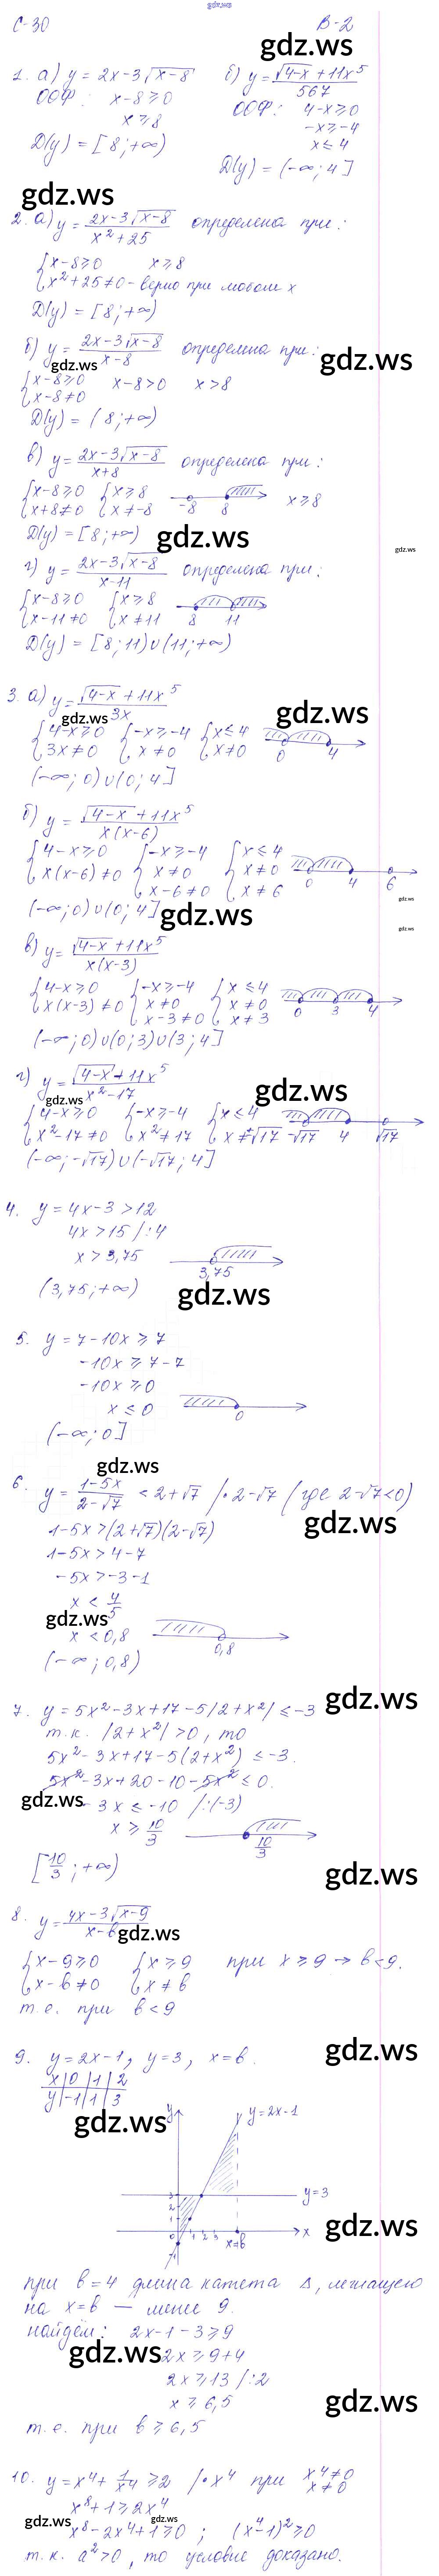 gdz.ws
С-30 В-2
gdz.ws
1. а) y = 2x-3√x-8 б) y = √4-x + 11x⁵ / 567
ООФ: x-8≥0 ООФ: 4-x≥0
x≥8 -x≥-4
D(y) = [8;+∞) x≤4
D(y) = (-∞;4]
gdz.ws
2. а) y = 2x-3√x-8 / x²+25 определена при:
{x-8≥0 x≥8
{x²+25≠0 - верно при любом x
D(y) = [8;+∞)
б) y = 2x-3√x-8 / x-8 определена при:
gdz.ws gdz.ws
{x-8≥0 x-8>0 x>8
{x-8≠0
D(y) = (8;+∞)
в) y = 2x-3√x-8 / x+8 определена при:
{x-8≥0 {x≥8 x≥8
{x+8≠0 {x≠-8 -8 8
D(y) = [8;+∞) gdz.ws
gdz.ws
г) y = 2x-3√x-8 / x-11 определена при:
{x-8≥0 {x≥8
{x-11≠0 {x≠11 8 11
D(y) = [8;11)∪(11;+∞)
3. а) y = √4-x + 11x⁵ / 3x
gdz.ws gdz.ws
{4-x≥0 {-x≥-4 {x≤4
{3x≠0 {x≠0 {x≠0 0 4
(-∞;0)∪(0;4]
б) y = √4-x + 11x⁵ / x(x-6)
{4-x≥0 {-x≥-4 {x≤4
{x(x-6)≠0 {x≠0 {x≠0 0 4 6
{x-6≠0 {x≠6
gdz.ws
(-∞;0)∪(0;4] gdz.ws
gdz.ws
в) y = √4-x + 11x⁵ / x(x-3)
{4-x≥0 {-x≥-4 {x≤4
{x(x-3)≠0 {x≠0 {x≠0 0 3 4
{x-3≠0 {x≠3
(-∞;0)∪(0;3)∪(3;4]
г) y = √4-x + 11x⁵ / x²-17
gdz.ws gdz.ws
{4-x≥0 {-x≥-4 {x≤4
{x²-17≠0 {x²≠17 {x≠±√17 -√17 4 √17
(-∞;-√17)∪(-√17;4]
4. y = 4x-3>12
4x>15 /:4
x>3,75
3,75
(3,75;+∞) gdz.ws
5. y = 7-10x≥7
-10x≥7-7
-10x≥0
x≤0 0
(-∞;0]
gdz.ws
6. y = 1-5x / 2-√7 < 2+√7 /·2-√7 (где 2-√7<0)
gdz.ws
1-5x>(2+√7)(2-√7)
1-5x>4-7
-5x>-3-1
x<4/5
gdz.ws
x<0,8 0,8
(-∞;0,8)
gdz.ws
7. y = 5x²-3x+17-5|2+x²|≤-3
т.к. |2+x²|>0, то
5x²-3x+17-5(2+x²)≤-3.
5x²-3x+20-10-5x²≤0.
gdz.ws
-3x≤-10 /:(-3)
x≥10/3 10/3
[10/3;+∞) gdz.ws
8. y = 4x-3√x-9 / x-b
gdz.ws
{x-9≥0 {x≥9 при x≥9 → b<9.
{x-b≠0 {x≠b
т.е. при b<9
gdz.ws
9. y=2x-1, y=3, x=b.
x|0|1|2
y|-1|1|3
gdz.ws
y y=2x-1
3 y=3
2
1 gdz.ws
0 1 2 3 x=b x
-1
при b=4 длина катета Δ, лежащего
на x=b — менее 9.
найдём: 2x-1-3≥9
gdz.ws
2x≥9+4
2x≥13 /:2
gdz.ws
x≥6,5
т.е. при b≥6,5
10. y = x⁴+1/x⁴≥2 /·x⁴ при x⁴≠0
x≠0
x⁸+1≥2x⁴
gdz.ws gdz.ws
x⁸-2x⁴+1≥0; (x⁴-1)²≥0
т.к. a²>0, то условие доказано.